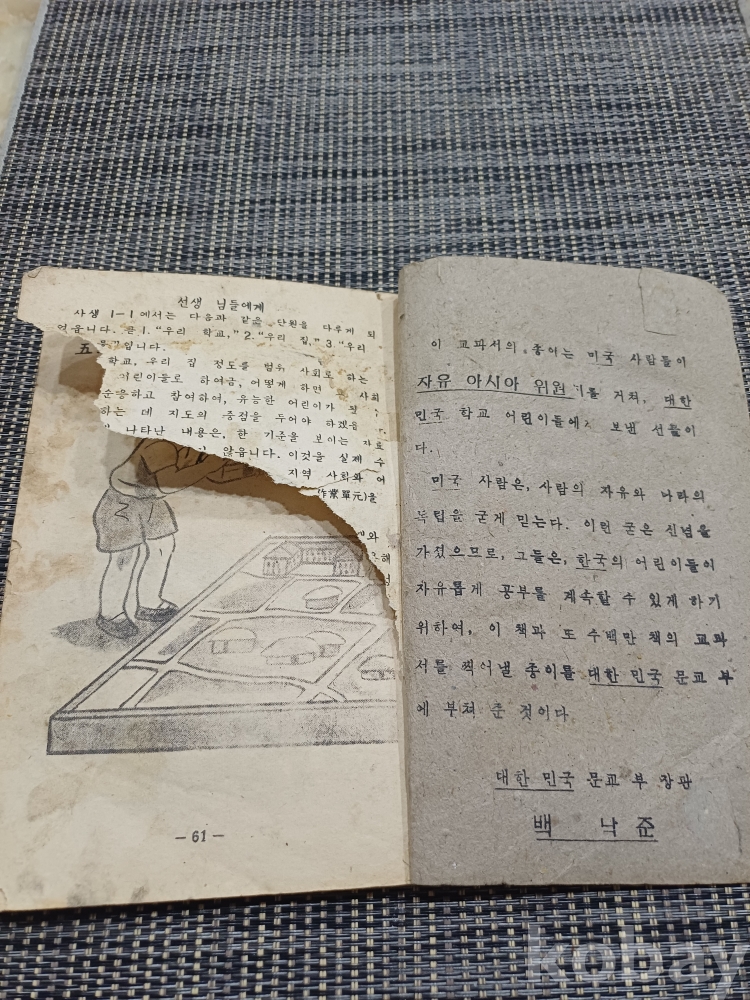 선생 님들에게
사생 1—1에서는 다음과 같은 단원을 다루게 되
었읍니다. 곧 1. "우리 학교," 2. "우리 집," 3. "우리
입니다.
五
학교, 우리 집 정도를 범위 사회로 하는
어린이들로 하여금, 어떻게 하면 사회
순응하고 참여하여, 유능한 어린이가 될
하는 데 지도의 중점을 두어야 하겠읍
나타난 내용은, 한 기준을 보이는 자료
않읍니다. 이것을 실제
지역 사회와
(作業單元)을
— 61 —
이 교과서의 종이는 미국 사람들이
자유 아시아 위원 를 거쳐, 대한
민국 학교 어린이들에 보낸 선물이
다.
미국 사람은, 사람의 자유와 나라의
독립을 굳게 믿는다. 이런 굳은 신념을
가졌으므로, 그들은, 한국의 어린이들이
자유롭게 공부를 계속할 수 있게 하기
위하여, 이 책과 또 수백만 책의 교과
서를 찍어낼 종이를 대한 민국 문교 부
에 부쳐 준 것이다
대한 민국 문교 부 장관
백 낙 준
kobay